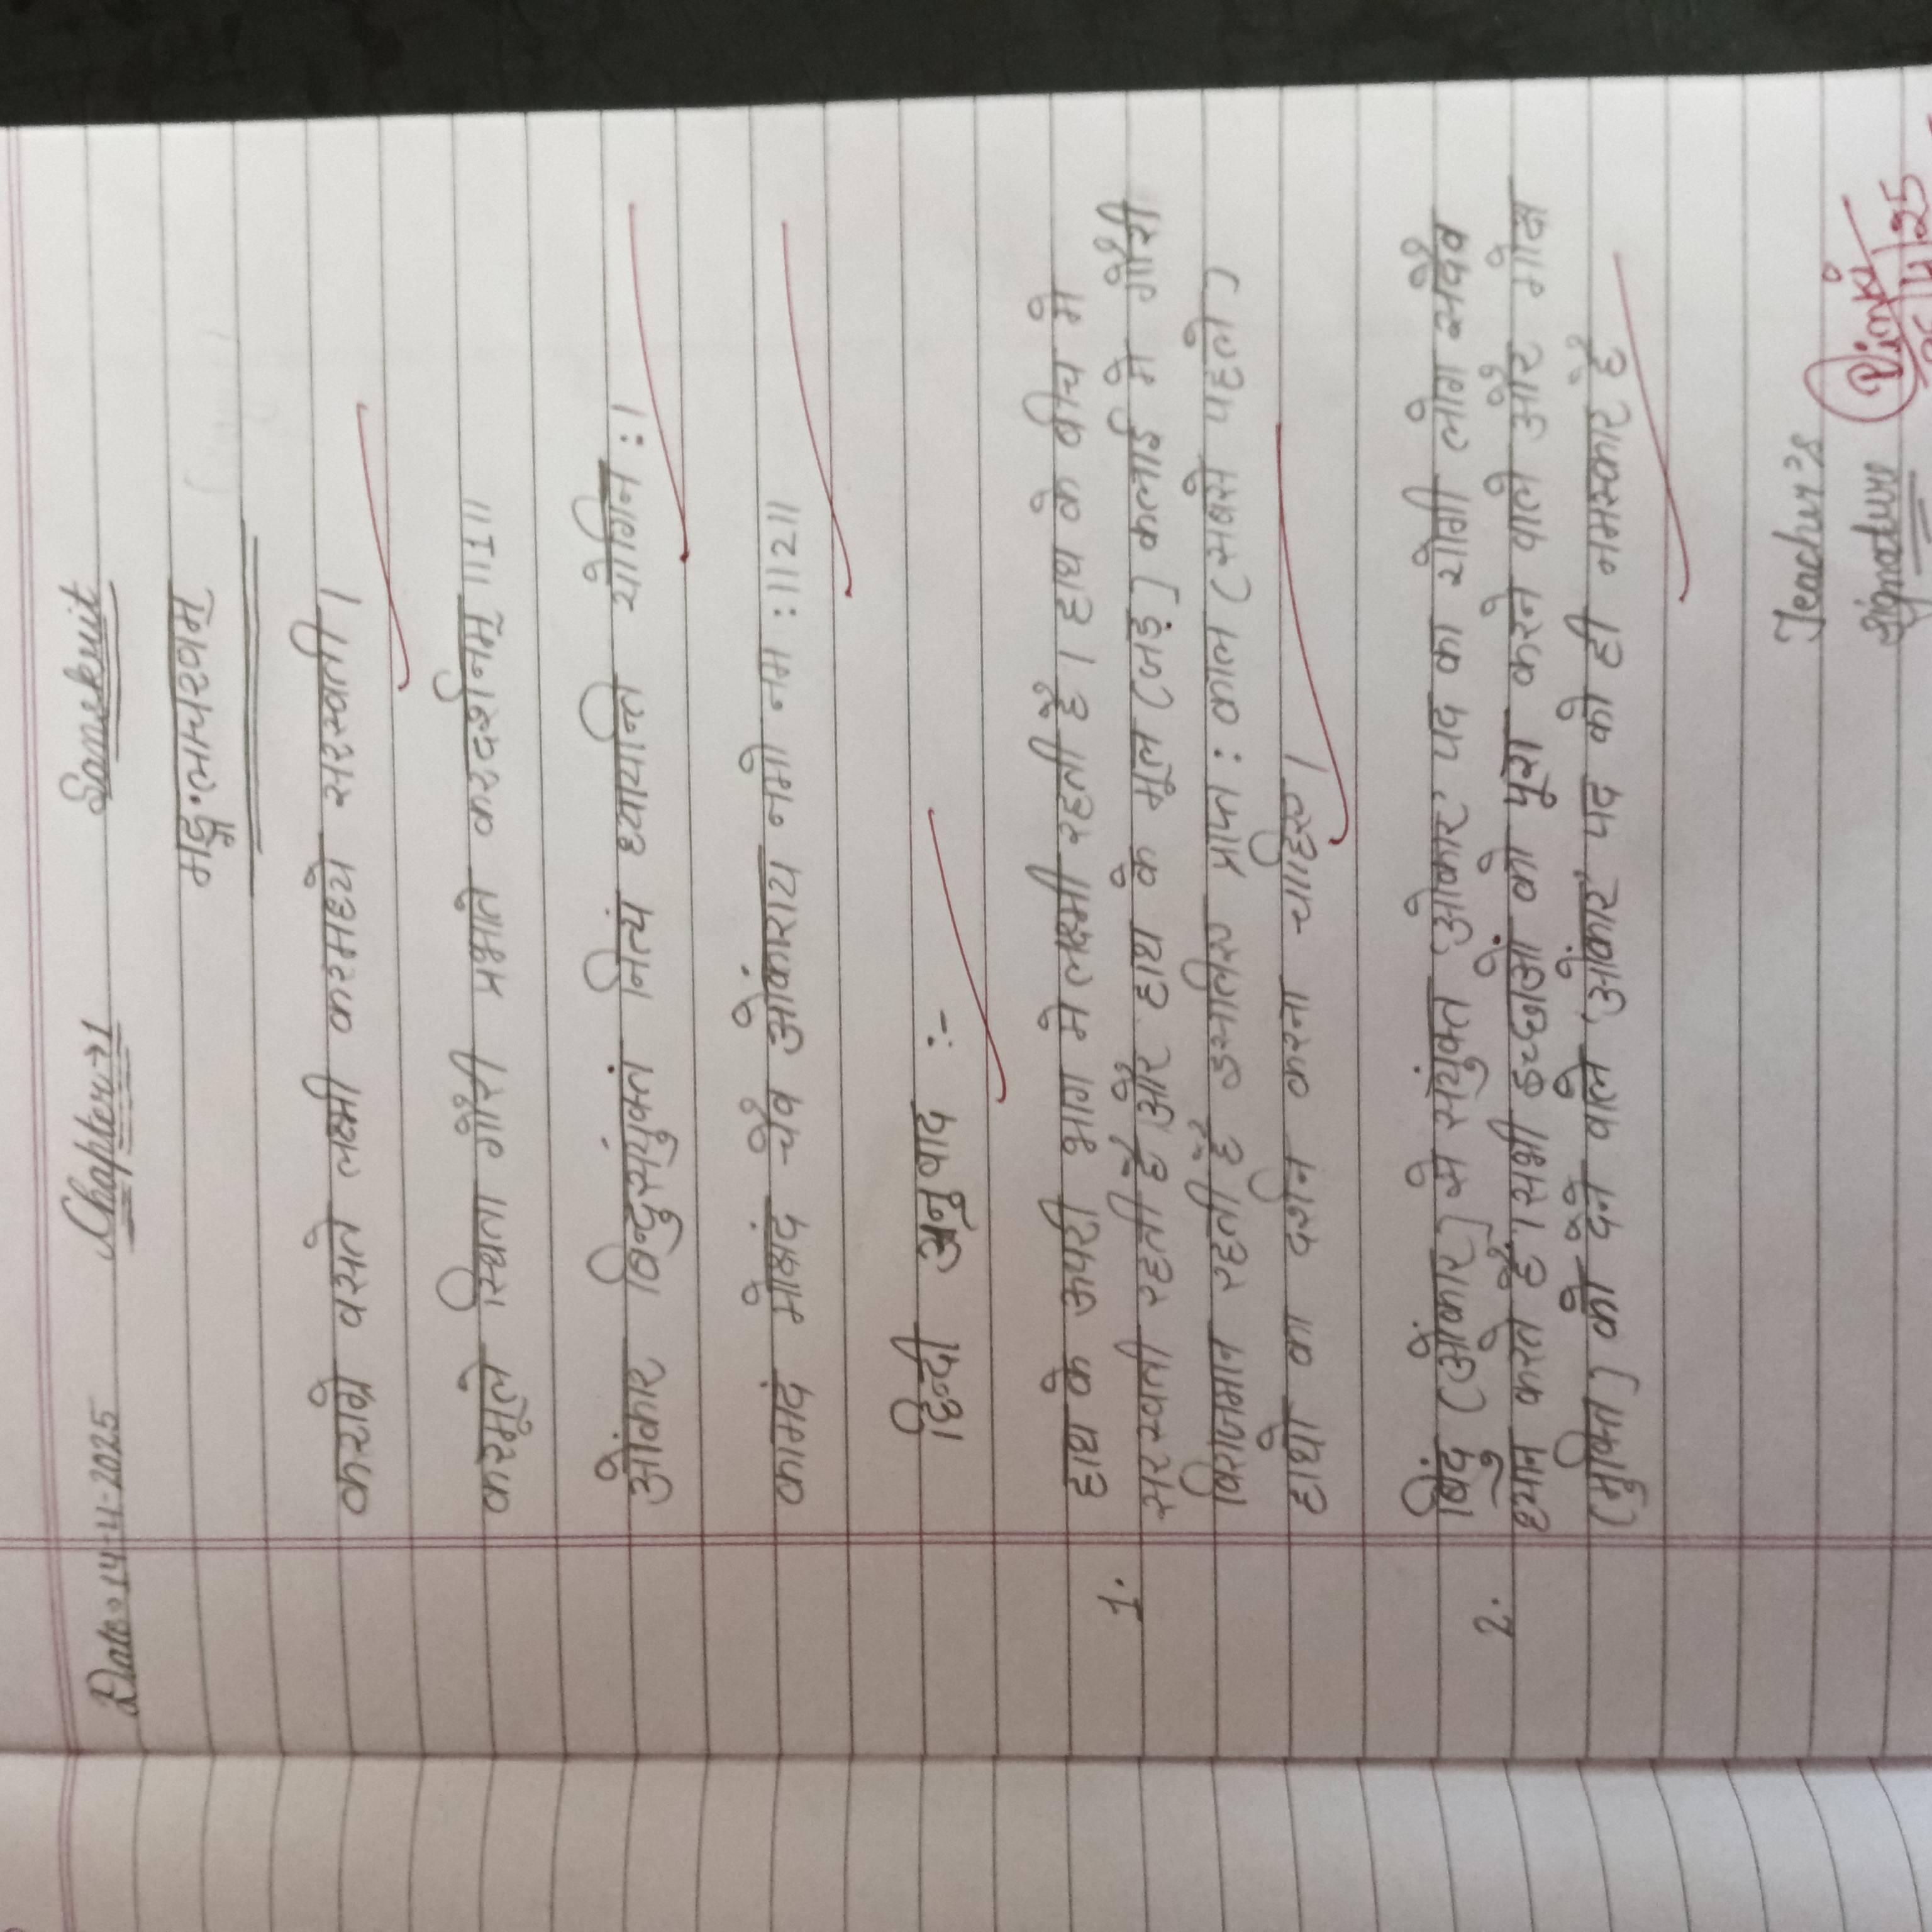 Date:- 14-4-2025 Chapter→1 Sanskrit
मङ्गलाचरणम्
कराग्रे वसते लक्ष्मी करमध्ये सरस्वती।
करमूले स्थिता गौरी प्रभाते करदर्शनम् ॥1॥
ओंकार बिन्दुसंयुक्तं नित्यं ध्यायन्ति योगिन :।
कामदं मोक्षदं चैव ओंकाराय नमो नम :॥2॥
हिन्दी अनुवाद :-
1. हाथ के ऊपरी भाग मे लक्ष्मी रहती है। हाथ के बीच मे
सरस्वती रहती है और हाथ के मूल (जड़) कलाई मे गौरी
विराजमान रहती है इसलिए प्रात : काल (सबसे पहले)
हाथो का दर्शन करना चाहिए।
2. बिंदु (ओंकार) से संयुक्त 'ओंकार' पद का योगी लोग सदैव
ध्यान करते है। सभी इच्छाओं को पूरा करने वाले और मोक्ष
(मुक्ति) को देने वाले 'ओंकार' पद को ही नमस्कार है
Teacher's
Signature
Pinki